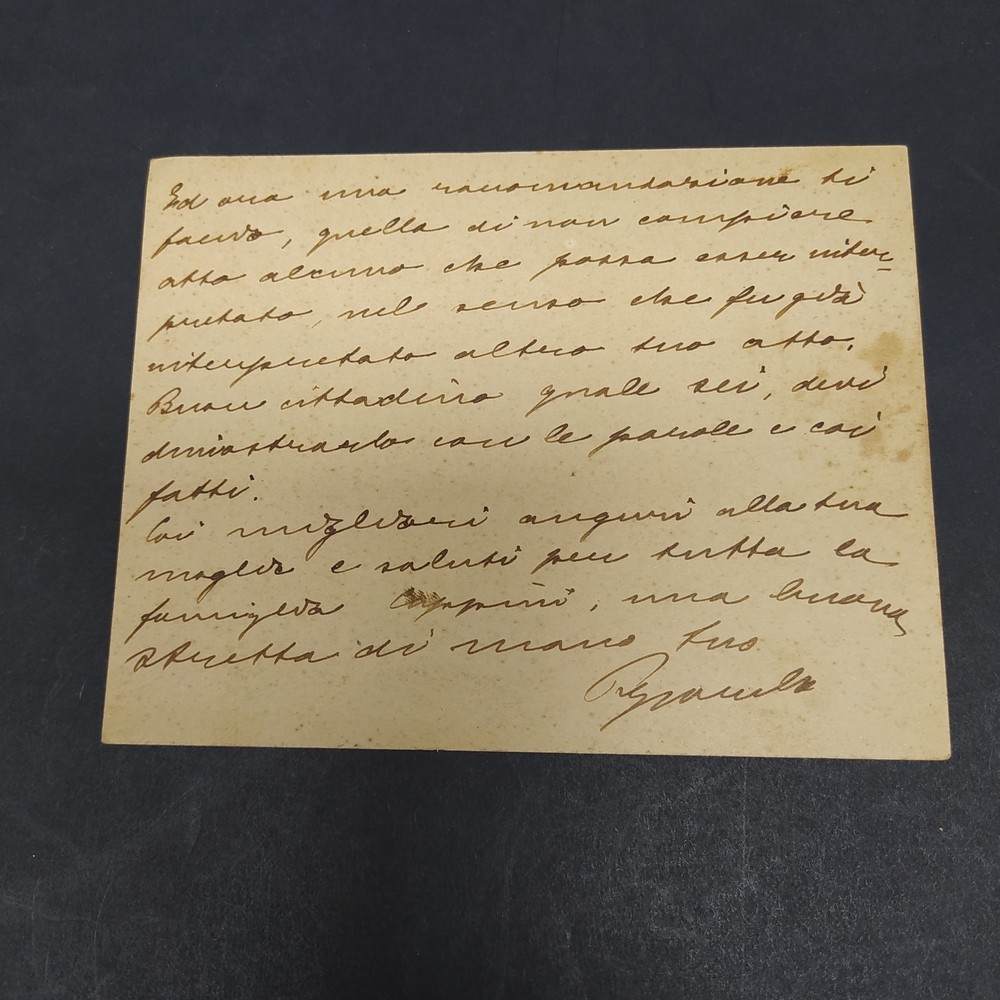 Ed ora una raccomandazione ti
faccio, quella di non compiere
atto alcuno che possa esser inter-
pretato, nel senso che fu già
interpretato altro tuo atto.
Buon cittadino quale sei, devi
dimostrarlo con le parole e coi
fatti.
Coi migliori auguri alla tua
moglie e saluti per tutta la
famiglia, una buona
stretta di mano tuo